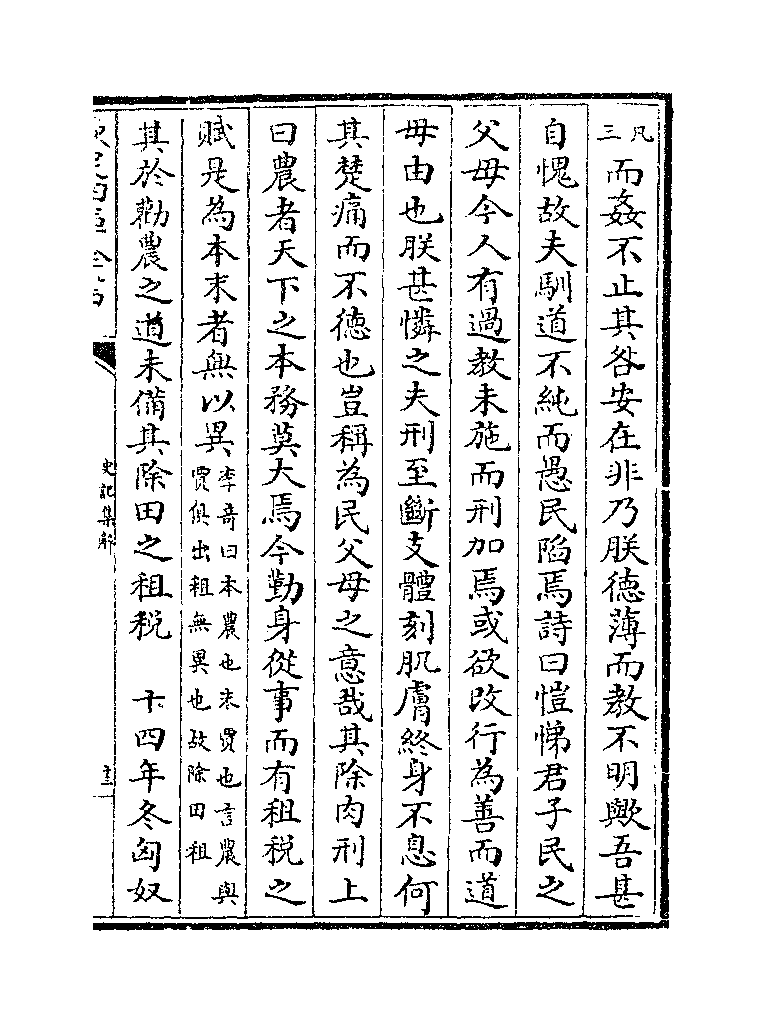 凡三而姦不止其咎安在非乃朕德薄而教不明歟吾甚
自愧故夫馴道不純而愚民陷焉詩曰愷悌君子民之
父母今人有過教未施而刑加焉或欲改行為善而道
毋由也朕甚憐之夫刑至斷支體刻肌膚終身不息何
其楚痛而不德也豈稱為民父母之意哉其除肉刑上
曰農者天下之本務莫大焉今勤身從事而有租稅之
賦是為本末者無以異李奇曰本農也末賈也言農與
賈俱出租無異也故除田租
其於勸農之道未備其除田之租稅 十四年冬匈奴
史記集解